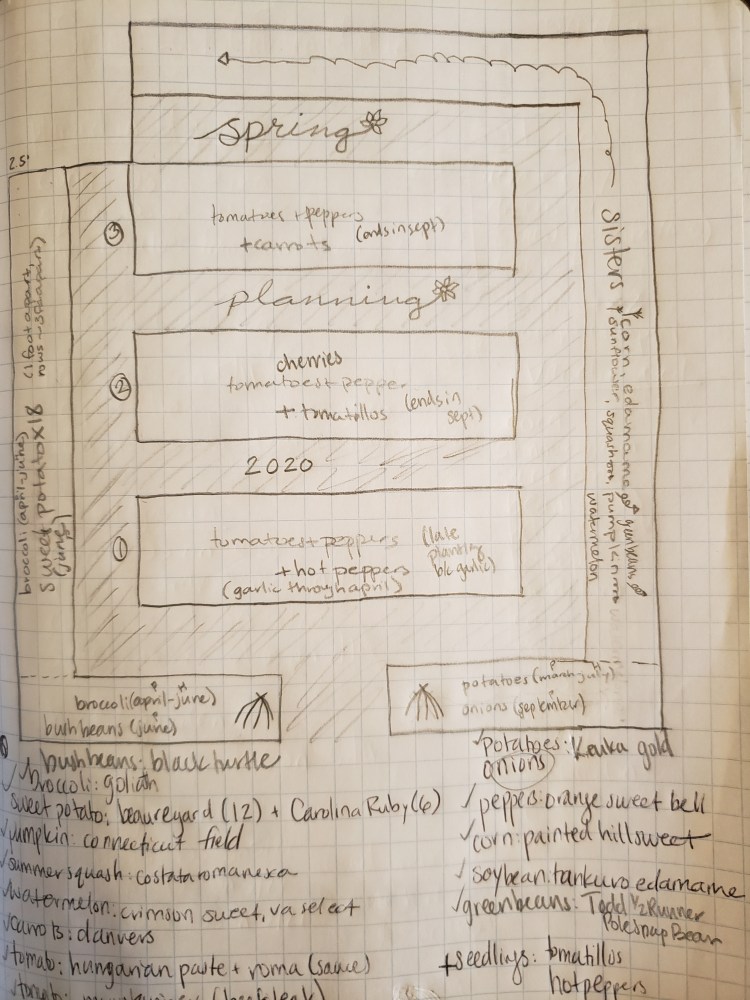 spring
2.5'
③
tomatoes + peppers
+ carrots (ends in sept)
planning
②
cherries
tomatoes + pepper
+ tomatillos (ends in sept)
2020
①
tomatoes + peppers (late planting b/c garlic)
+ hot peppers
(garlic through april)
broccoli (april-june)
sweet potato x 18 (1 foot apart,
rows
apart)
(june)
sisters
corn, edamame, greenbeans
sunflower, squash, pumpkin
watermelon
broccoli (april-june)
bush beans (june)
potatoes (march-july)
onions (september)
bush beans: black turtle
broccoli: goliath
sweet potato: beauregard (12) + Carolina Ruby (6)
pumpkin: connecticut field
summer squash: costata romanexa
watermelon: crimson sweet, va select
carrots: danvers
tomato: hungarian paste + roma (sauce)
potatoes: Keuka gold
onions
peppers: orange sweet bell
corn: painted hill sweet
soybean: tankuro edamame
greenbeans: Todd 1/2 Runner
Pole Snap Bean
+ seedlings: tomatillos
hot peppers